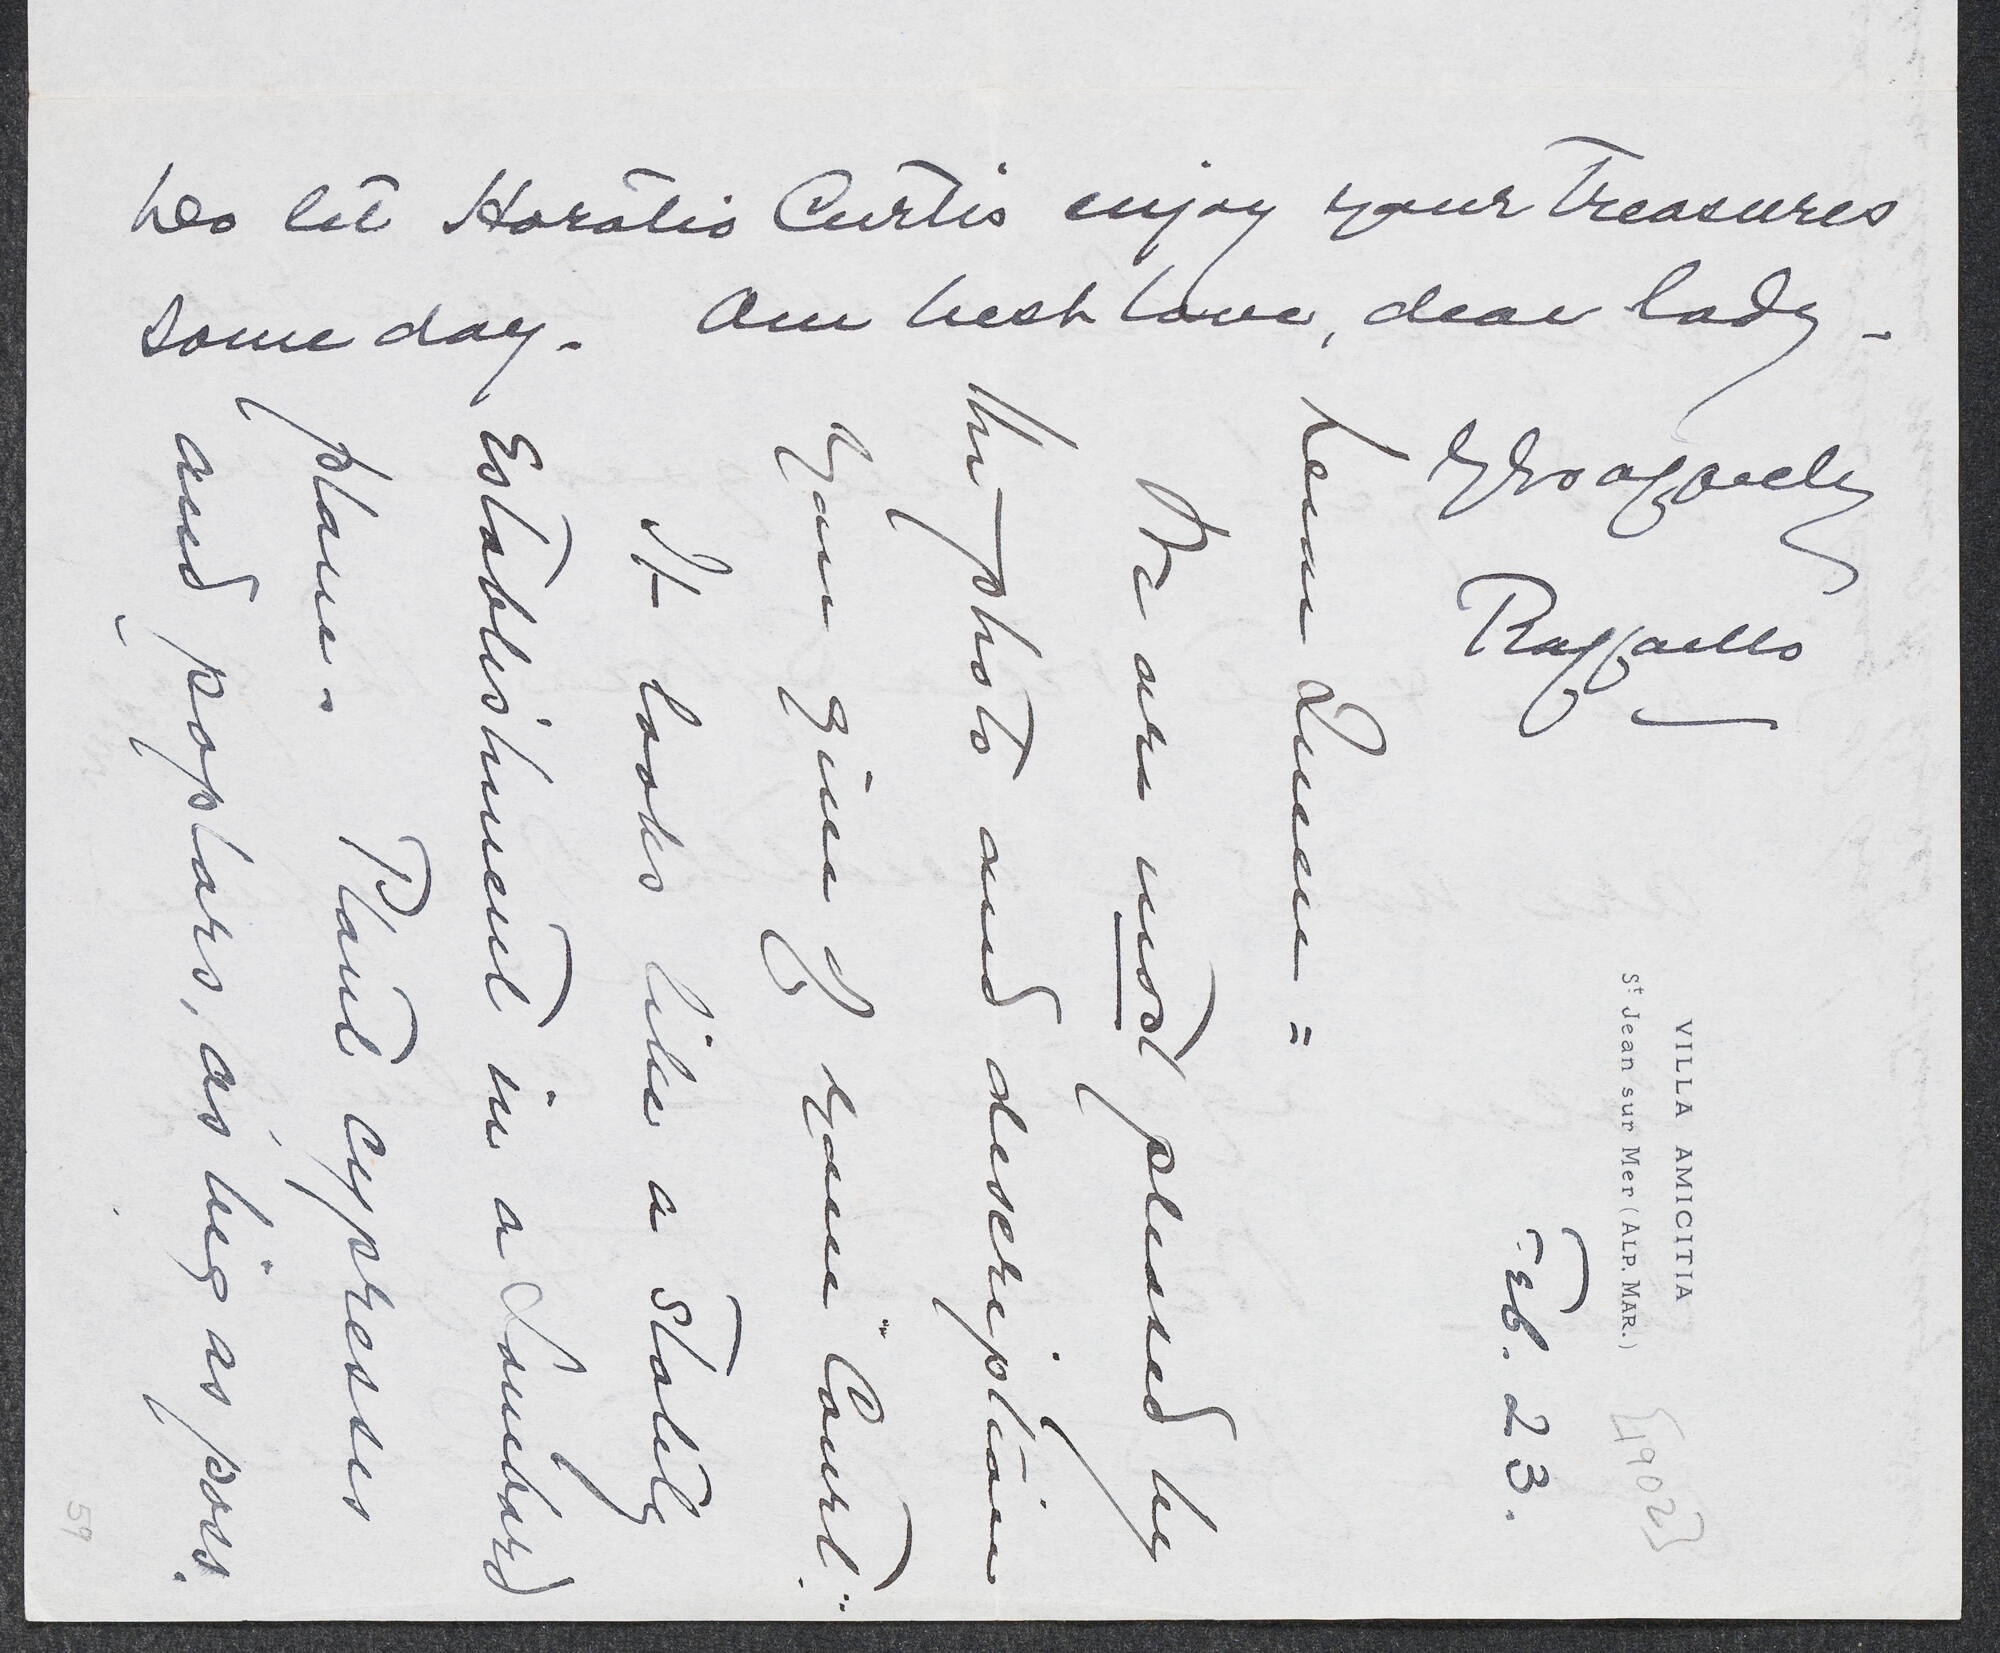 Do let Horatio Curtis enjoy your Treasures
some day. Our best love, dear lady -
Yrs affectly
Raffaello
VILLA AMICITIA
St Jean sur Mer (ALP. MAR.)
[1902]
Feb. 23.
Dear Queen =
We are most pleased by
the photo and description
you give of your "Court."
It looks like a stately
Establishment in a Lombard
plain. Plant cypresses
and poplars, as big as poss.
59